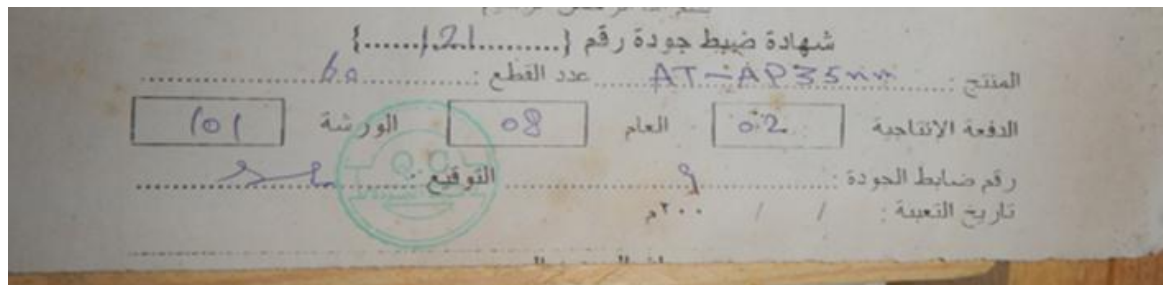 شهادة ضبط جودة رقم {..........121......}
المنتج : AT-AP35mm عدد القطع : 60
الدفعة الإنتاجية 02 العام 08 الورشة 101
رقم ضابط الجودة : 9 التوقيع :
تاريخ التعبئة : / / ٢٠٠م